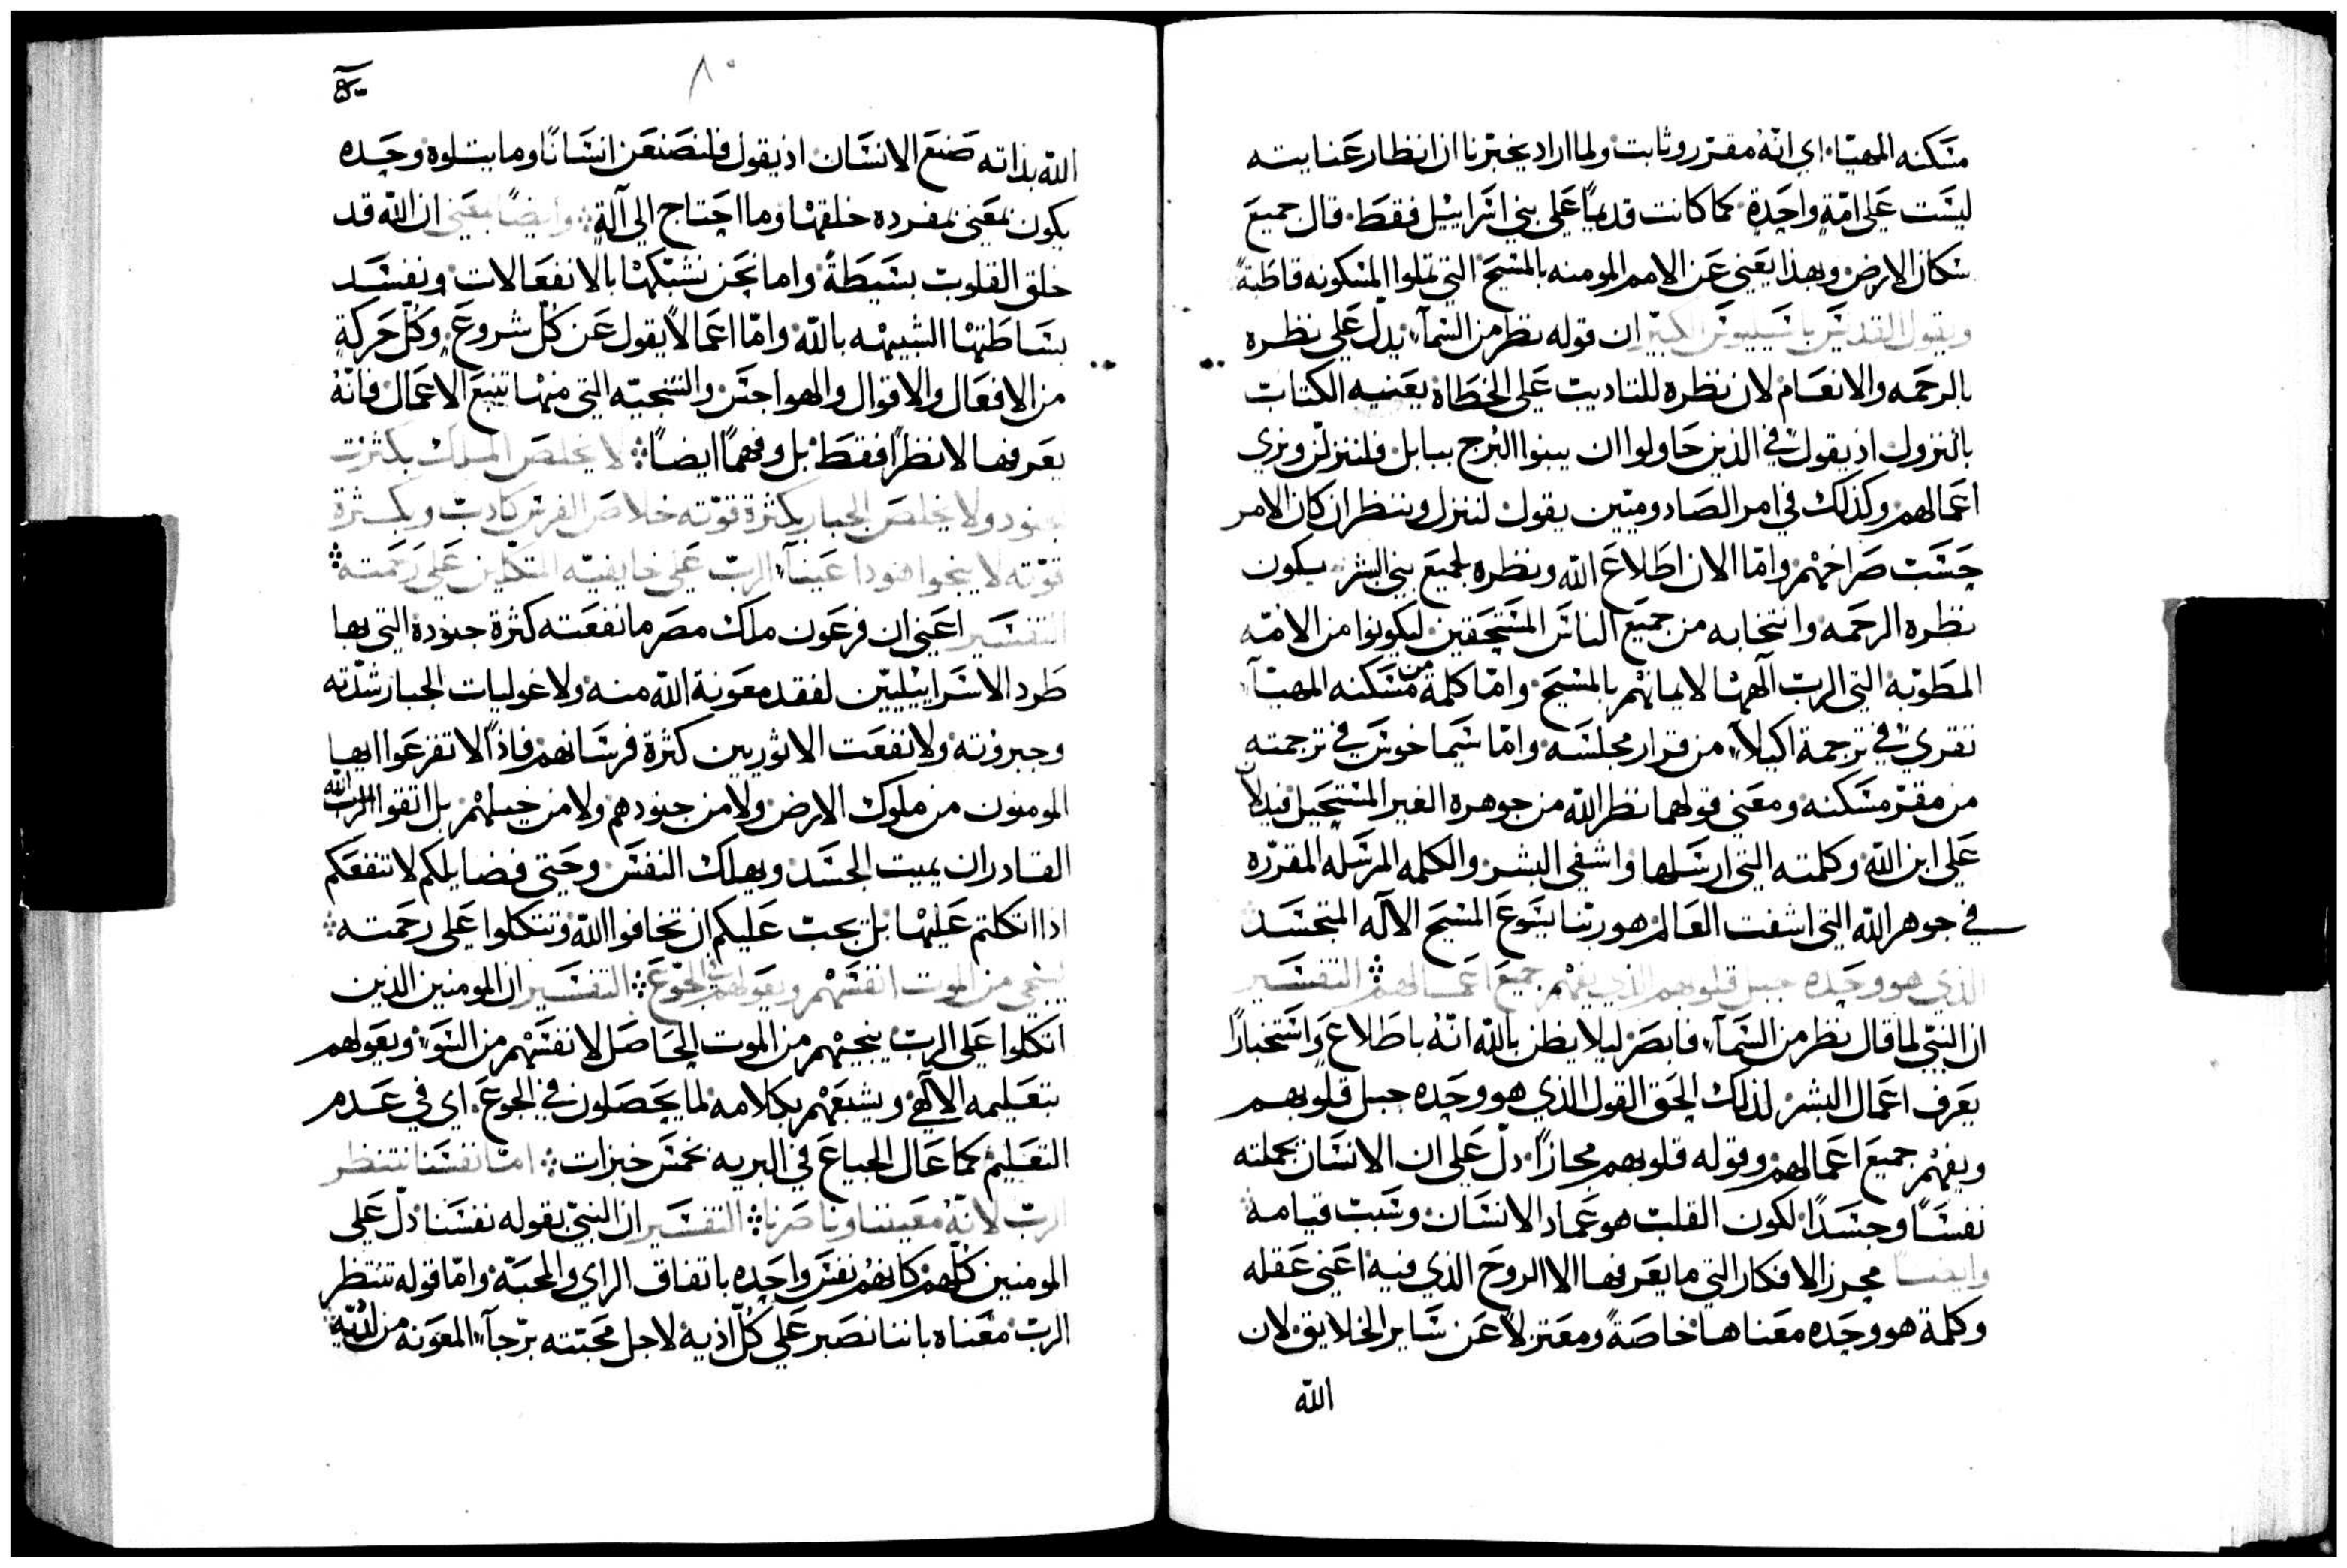 مسكنه المهيّا. اي انّهُ مقرّر وثابت ولما اراد يخبّرنا ان انظار عنايته
ليست على امّةٍ واحدةٍ كما كانت قديمًا على بني اسراييل فقط. قال جميع
سكان الارض وبهذا يعني عن الامم المومنه بالمسيح التي تملوا المسكونه قاطبةً
ويقول القديس باسيليوس الكبير ان قوله نظر من السمآء يدلّ على نظره
بالرحمه والانعام لان نظره للتاديب على الخطاة يعنيه الكتاب
بالنزول اذ يقول في الذين حاولوا ان يبنوا البُرج ببابل فلننزلنّ ونرى
اعمالهم وكذلك في امر الصادوميّين يقول لننزل وننظر ان كان الامر
حسب صراخهم وامّا الان اطلاع الله ونظره لجميع بني البشر يكون
نظره الرحمه وانتخابه من جميع الناس المستحقين ليكونوا من الامّه
المطوّبة التي الرب الٓهها لايمانهم بالمسيح وامّا كلمة من مسكنه المهيّآء
تقرى في ترجمة اكيلاّء من قرار مجلسه وامّا سيماخوس في ترجمته
من مقرّ مسكنه ومعنى قولهما نظر الله من جوهره الغير المستحيل فيدلان
على ابن الله وكلمته التي ارسلها واشفى البشر والكلمه المرسله المقرّره
في جوهر الله التي اشفت العالم هو ربّنا يسوع المسيح الالٓه المتجسد
الذي هو وحده جبل قلوبهم الذي يفهم جميع اعمالهم التفسير
ان النبيّ لما قال نظر من السمآء فابصر ليلا يظن بالله انّهُ باطلاع واستخبارًا
يعرف اعمال البشر لذلك الحق القول الذي هو وحده جبل قلوبهم
ويفهم جميع اعمالهم وقوله قلوبهم مجازًا. دلّ على ان الانسان بجملته
نفسًا وجسدًا لكون القلب هو عماد الانسان وسبب قيامه
وايضًا محرز الافكار التي ما يعرفها الا الروح الذي فيه اعني عقله
وكلمة هو وحده معناها خاصةً ومعتزلاً عن ساير الخلايق لان
الله
٨٠
الله بذاته صنع الانسان اذ يقول فلنصنعن انسانًا وما يتلوه وحده
يكون بمعنى بمفرده خلقها وما احتاج الى آلةٍ وايضًا بمعنى ان الله قد
خلق القلوب بسيطةً واما نحن نشبّكها بالانفعالات ونفسد
بساطتها الشبيهه بالله وامّا اعمالاً يقول عن كُلّ شروعٍ وكُلّ حركةٍ
من الافعال والاقوال والهواجس والسجيّه التي منها تنبع الاعمال فانّهُ
يعرفها لا نظرًا فقط بل وفهمًا ايضًا لا يخلص الملك بكثرت
جنوده ولا يخلص الجبار بكثرة قوّته خلاص الفرس كاذب وبكثرة
قوّته لا ينجوا هنوذا عينآء الرب على خايفيه المتكلين على رحمته
التفسير اعني ان فرعون ملك مصر ما نفعته كثرة جنوده التي بها
طرد الاسراييليّين لفقد معونة الله منه ولا غوليات الجبار شدّته
وجبروته ولا نفعت الاثوريين كثرة فرسانهم فاذًا لا تفزعوا ايها
المومنون من ملوك الارض ولا من جنودهم ولا من خيلهم بل اتقوا الرب الله
القادر ان يميت الجسد ويهلك النفس وحتى فضايلكم لا تنفعكم
اذا اتكلتم عليها بل يجب عليكم ان تخافوا الله وتتكلوا على رحمته
لينجي من الموت انفسهم ويعولهم في الجوع التفسير ان المومنين الذين
اتكلوا على الرب ينجيهم من الموت الحاصل لانفسهم من السوء ويعولهم
بتعليمه الالٓهي ويشبعهم بكلامه لما يحصلون في الجوع. اي في عدم
التعليم كما عال الجياع في البريه بخمس خبزات امّا نفسنا تنتظر
الرب لانّهُ معيننا وناصرنا التفسير ان النبيّ بقوله نفسنا دلّ على
المومنين كلّهم كانهم نفس واحده باتفاق الراي والمحبّة وامّا قوله تنتظر
الرب معناه باننا نصبر على كُلّ اذيه لاجل محبّته برجآء المعونه من لدنه